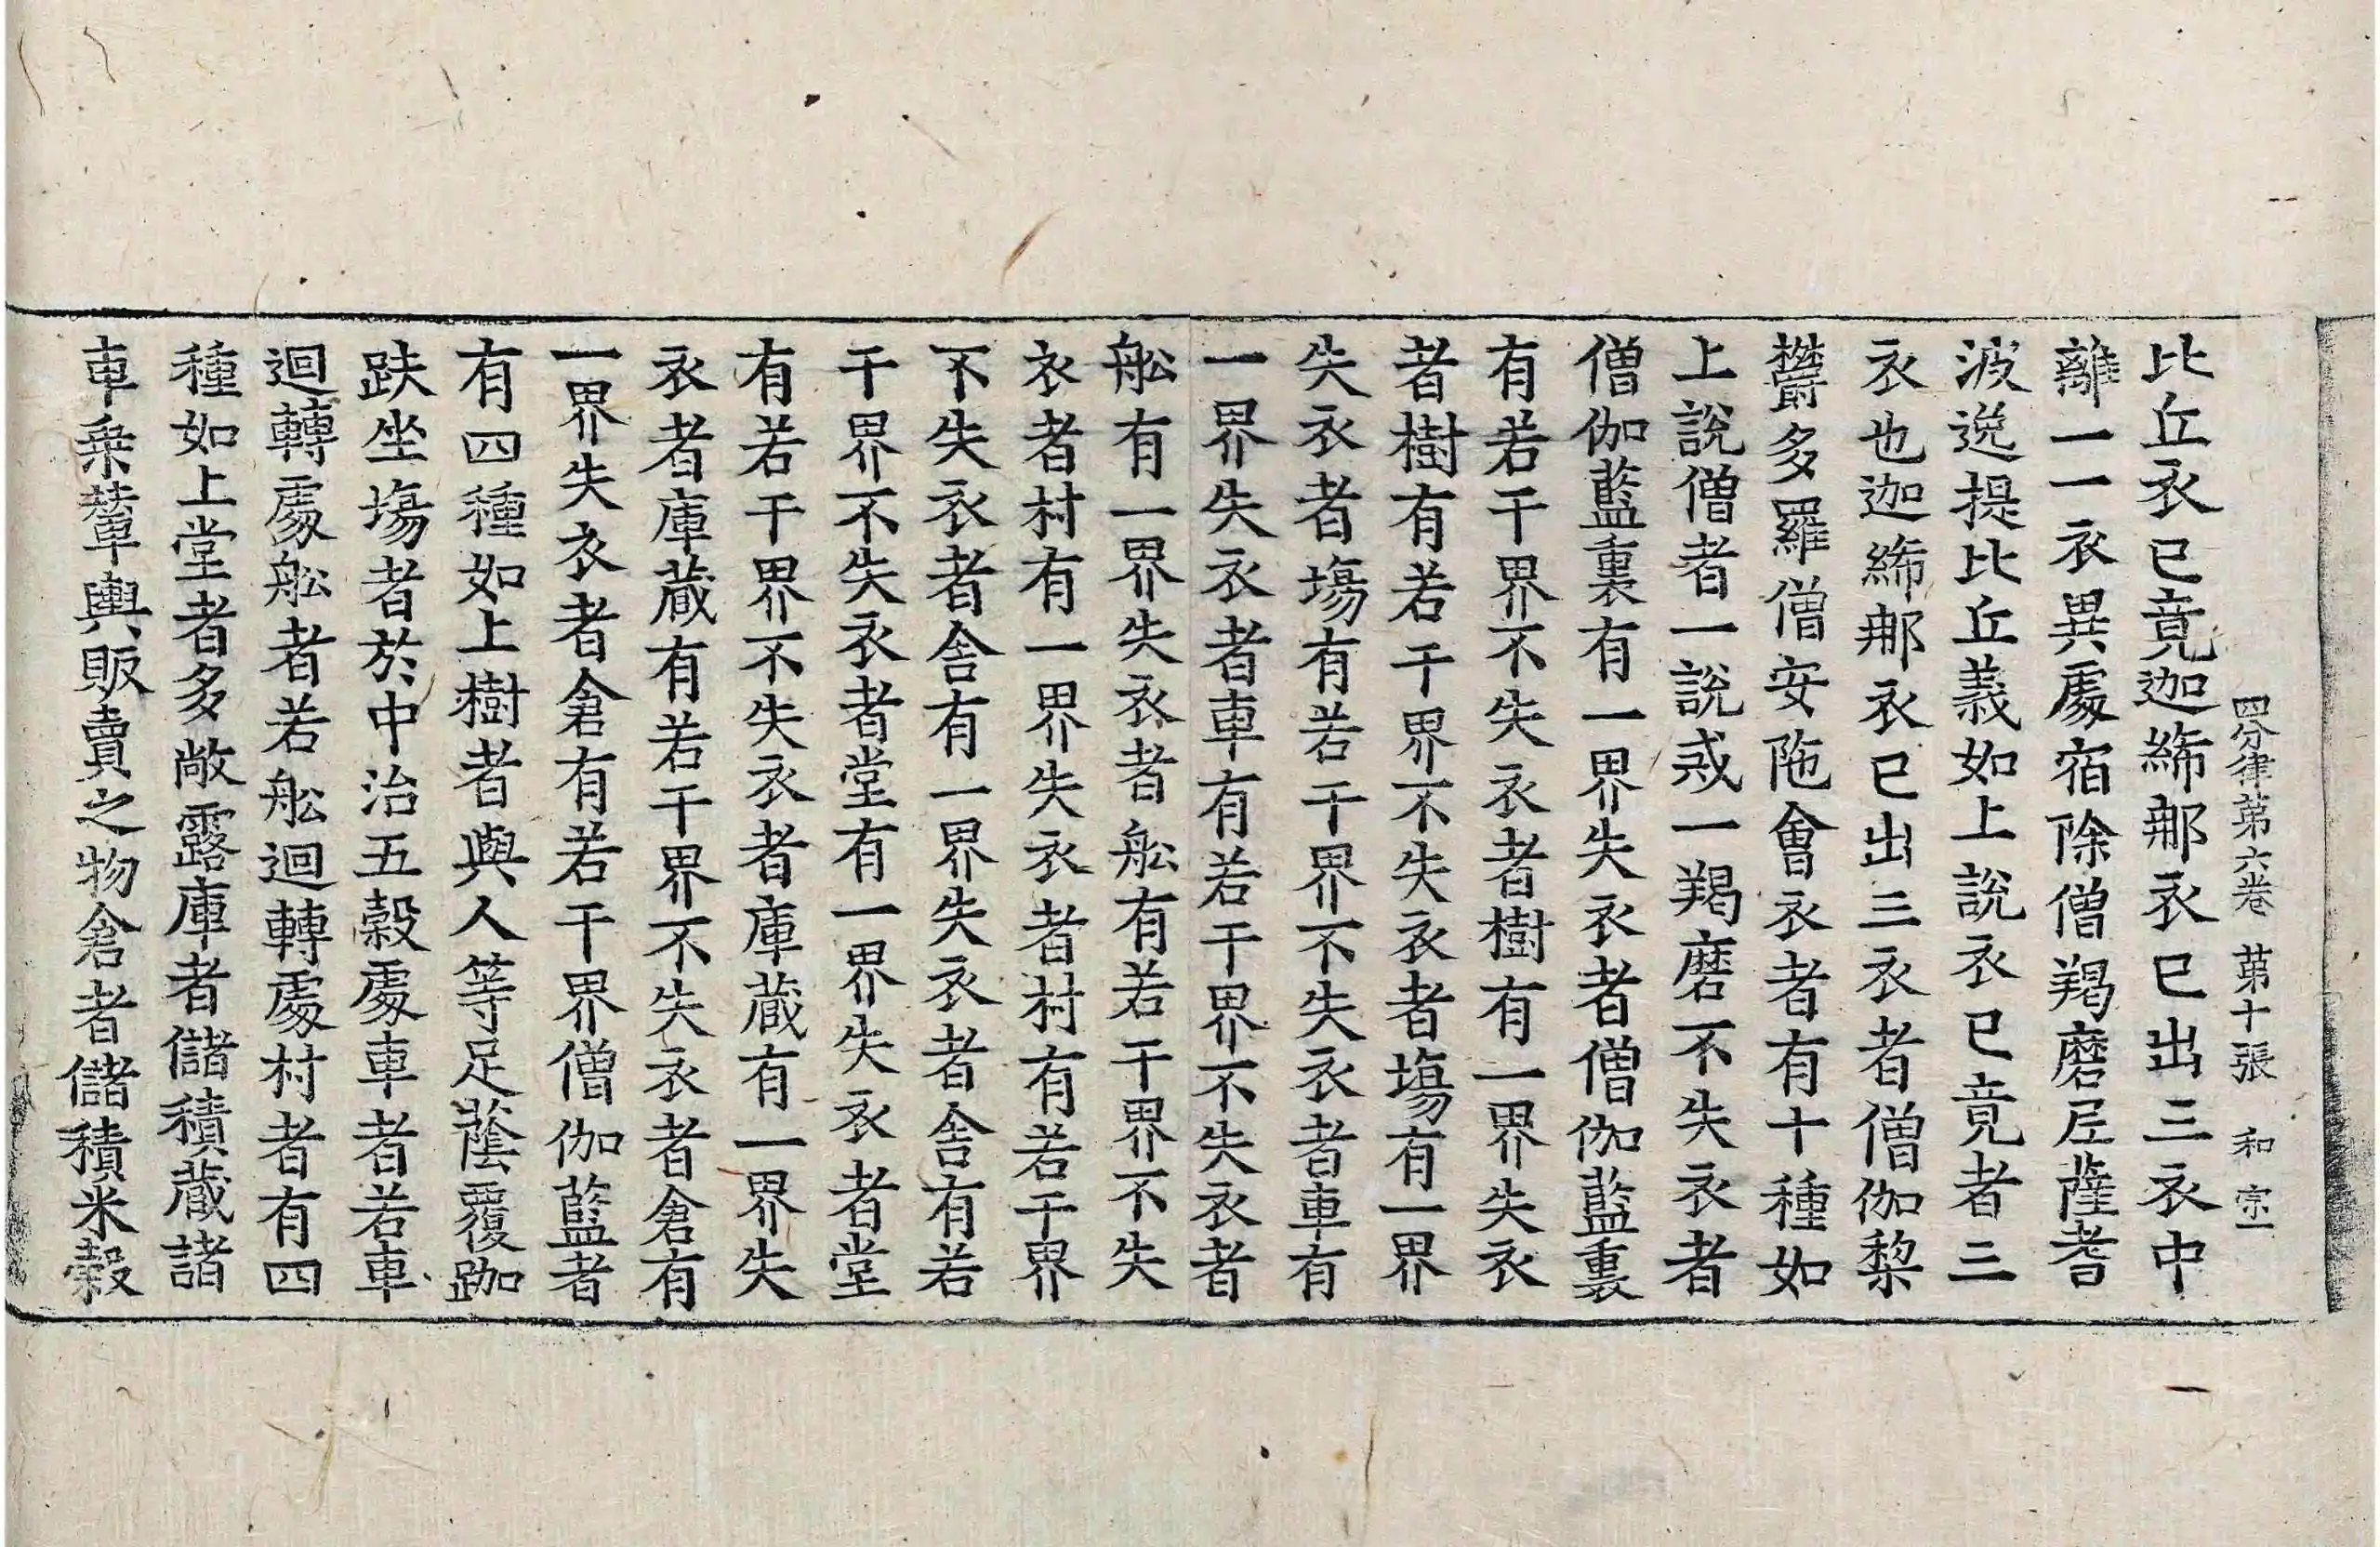 四分律第六卷 第十張 和 宗一
比丘衣已竟迦絺那衣已出三衣中
離一一衣異處宿除僧羯磨尼薩耆
波逸提比丘義如上說衣已竟者三
衣也迦絺那衣已出三衣者僧伽梨
欝多羅僧安陁會衣者有十種如
上說僧者一說戒一羯磨不失衣者
僧伽藍裏有一界失衣者僧伽藍裏
有若干界不失衣者樹有一界失衣
者樹有若干界不失衣者塲有一界
失衣者塲有若干界不失衣者車有
一界失衣者車有若干界不失衣者
舩有一界失衣者舩有若干界不失
衣者村有一界失衣者村有若干界
不失衣者舍有一界失衣者舍有若
干界不失衣者堂有一界失衣者堂
有若干界不失衣者庫藏有一界失
衣者庫藏有若干界不失衣者倉有
一界失衣者倉有若干界僧伽藍者
有四種如上樹者與人等足蔭覆跏
趺坐塲者於中治五穀處車者若車
迴轉處舩者若舩迴轉處村者有四
種如上堂者多敞露庫者儲積藏諸
車乗輦輿販賣之物倉者儲積米穀